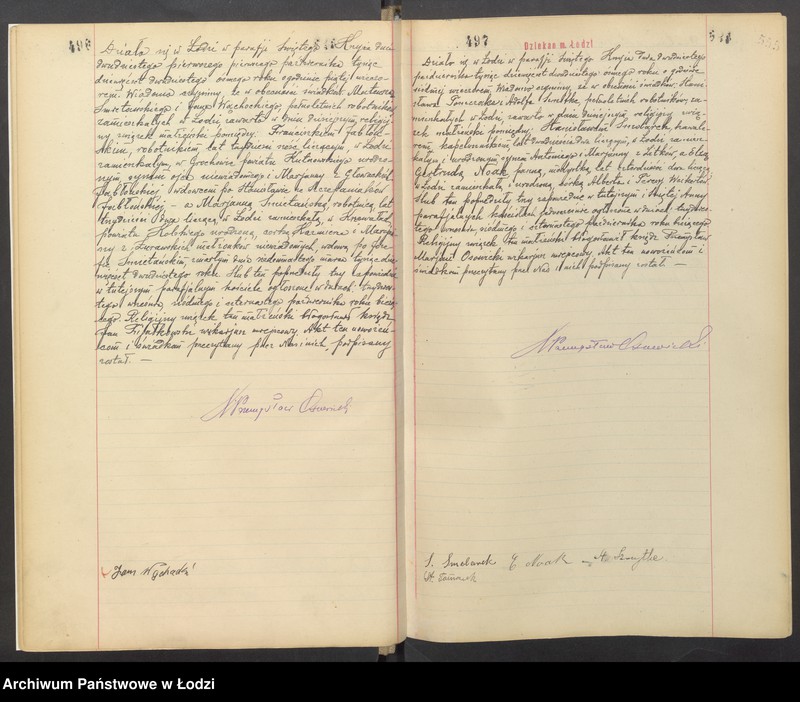 496
Działo się w Łodzi w parafji Świętego Krzyża dnia
dwudziestego pierwszego października tysiąc
dziewięćset dwudziestego ósmego roku o godzinie piątej wieczo-
rem. Wiadomo czynimy, że w obecności świadków Mateusza
i Jana pełnoletnich robotników
zamieszkałych w Łodzi, zawarto w dniu dzisiejszym religij-
ny związek małżeński pomiędzy Franciszkiem Jabłoń-
skim, robotnikiem lat trzydzieści sześć liczącym, w Łodzi
zamieszkałym, w Grochowie powiatu Kutnowskiego urodzo-
nym, synem ojca niewiadomego i Marjanny z
Jabłońskiej wdowcem po Stanisławie ze Szczepaniaków
Jabłońskiej – a Marjanną Śmietańską, robotnicą, lat
trzydzieści dwa liczącą, w Łodzi zamieszkałą, w
powiatu Kolskiego urodzoną, córką Kazimierza i Marjan-
ny z Żurawskich wdową po Józe-
fie Śmietańskim, zmarłym dnia siedemnastego marca tysiąc dzie-
więćset dwudziestego roku. Ślub ten poprzedziły trzy zapowiedzie
w tutejszym parafjalnym kościele ogłoszone w dniach: trzydzies-
tego września, siódmego i czternastego października roku bieżą-
cego. Religijny związek ten małżeński błogosławił ksiądz
Jan Fijałkowski wikarjusz miejscowy. Akt ten nowożeń-
com i świadkom przeczytany przez Nas i nich podpisany
został. —
Ks Przemysław Osowiecki
Jan
497
Dziekan m. Łodzi
511
505
Działo się w Łodzi w parafji Świętego Krzyża dnia dwudziestego
października tysiąc dziewięćset dwudziestego ósmego roku o godzinie
siódmej wieczorem. Wiadomo czynimy, że w obecności świadków: Stani-
sława i Adolfa pełnoletnich robotników, za-
mieszkałych w Łodzi, zawarto w dniu dzisiejszym, religijny zwią-
zek małżeński pomiędzy: Stanisławem Smolarek, kawale-
rem, kapelusznikiem, lat dwadzieścia dwa liczącym, w Łodzi zamiesz-
kałym i urodzonym, synem Antoniego i Marjanny z a
Gertrudą Noak panną, lat czterdzieści dwa liczącą,
w Łodzi zamieszkałą i urodzoną, córką Alberta i Teresy
Ślub ten poprzedziły trzy zapowiedzie w tutejszym i Świętej Anny
parafjalnych kościołach jednocześnie ogłoszone w dniach: trzydzies-
tego września, siódmego i czternastego października roku bieżącego.
Religijny związek ten małżeński błogosławił ksiądz Przemysław
Marjan Osowiecki wikarjusz miejscowy. Akt ten nowożeńcom i
świadkom przeczytany przez Nas i nich podpisany został. —
Ks Przemysław Osowiecki
S. Smolarek G. Noak
Archiwum Państwowe w Łodzi